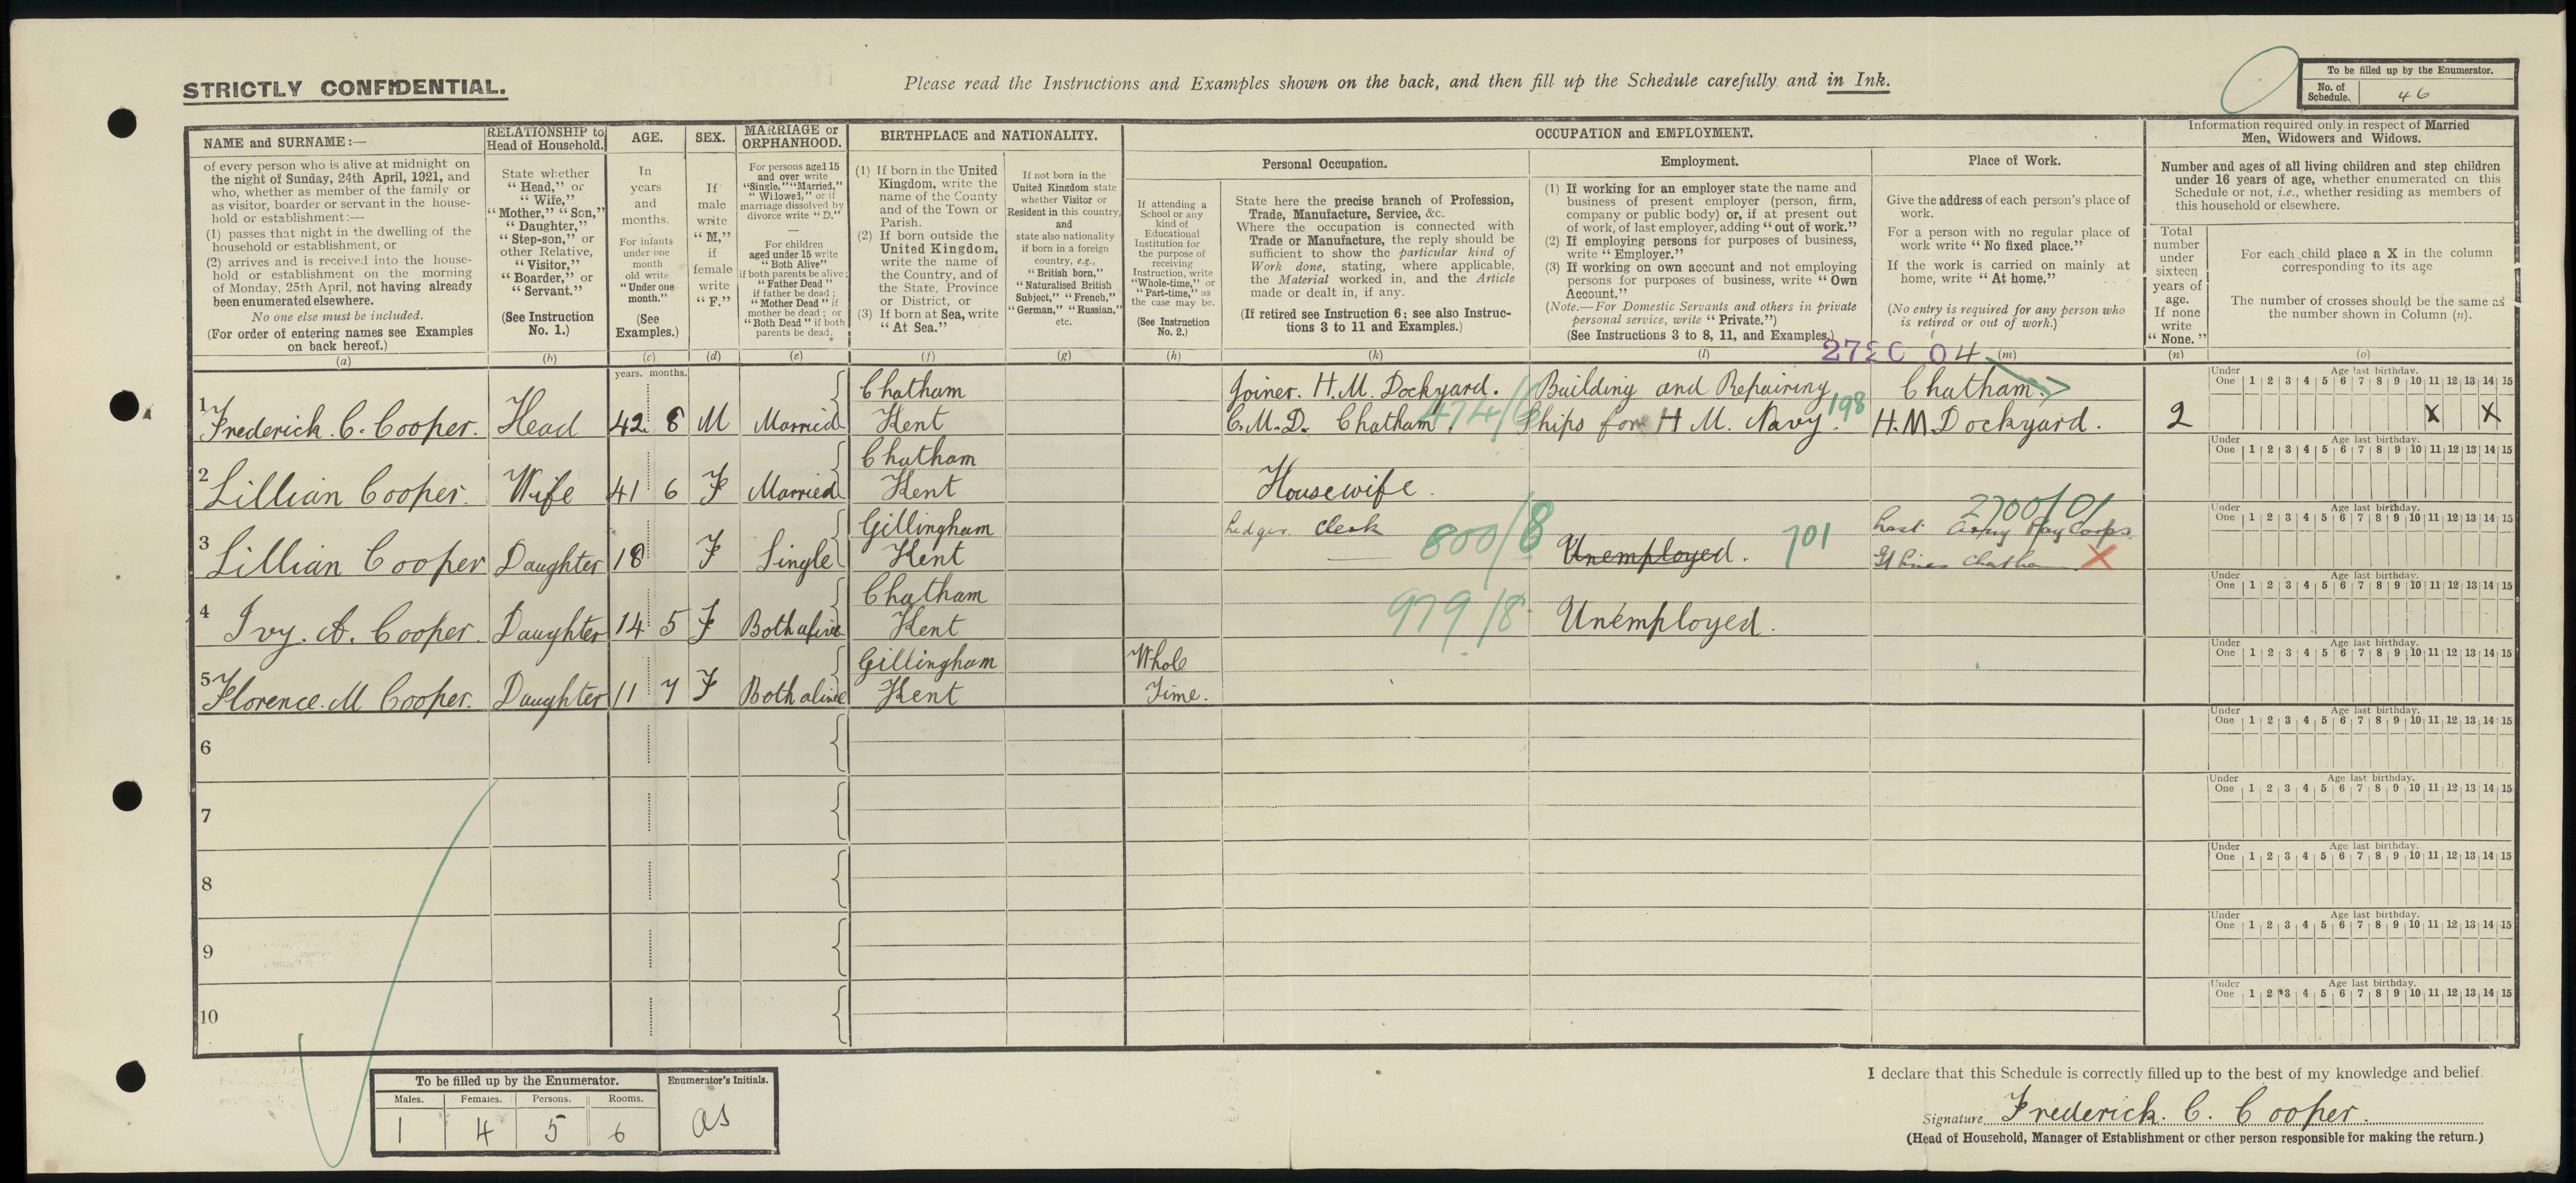 STRICTLY CONFIDENTIAL.
Please read the Instructions and Examples shown on the back, and then fill up the Schedule carefully and in Ink.
To be filled up by the Enumerator.
No. of Schedule. 46
NAME and SURNAME:—
of every person who is alive at midnight on
the night of Sunday, 24th April, 1921, and
who, whether as member of the family or
as visitor, boarder or servant in the house-
hold or establishment:—
(1) passes that night in the dwelling of the
household or establishment, or
(2) arrives and is received into the house-
hold or establishment on the morning
of Monday, 25th April, not having already
been enumerated elsewhere.
No one else must be included.
(For order of entering names see Examples
on back hereof.)
(a)
RELATIONSHIP to
Head of Household.
State whether
"Head," or
"Wife,"
"Mother," "Son,"
"Daughter,"
"Step-son," or
other Relative,
"Visitor,"
"Boarder," or
"Servant."
(See Instruction
No. 1.)
(b)
AGE.
In
years
and
months.
For infants
under one
month
old write
"Under one
month."
(See
Examples.)
(c)
SEX.
If
male
write
"M,"
if
female
write
"F."
(d)
MARRIAGE or
ORPHANHOOD.
For persons aged 15
and over write
"Single," "Married,"
"Widowed," or if
marriage dissolved by
divorce write "D."
—
For children
aged under 15 write
"Both Alive"
if both parents be alive;
"Father Dead"
if father be dead;
"Mother Dead" if
mother be dead; or
"Both Dead" if both
parents be dead.
(e)
BIRTHPLACE and NATIONALITY.
(1) If born in the United
Kingdom, write the
name of the County
and of the Town or
Parish.
(2) If born outside the
United Kingdom,
write the name of
the Country, and of
the State, Province
or District, or
(3) If born at Sea, write
"At Sea."
(f)
If not born in the
United Kingdom state
whether Visitor or
Resident in this country,
and
state also nationality
if born in a foreign
country, e.g.,
"British born,"
"Naturalised British
Subject," "French,"
"German," "Russian,"
etc.
(g)
OCCUPATION and EMPLOYMENT.
If attending a
School or any
kind of
Educational
Institution for
the purpose of
receiving
Instruction, write
"Whole-time," or
"Part-time," as
the case may be.
(See Instruction
No. 2.)
(h)
Personal Occupation.
State here the precise branch of Profession,
Trade, Manufacture, Service, &c.
Where the occupation is connected with
Trade or Manufacture, the reply should be
sufficient to show the particular kind of
Work done, stating, where applicable,
the Material worked in, and the Article
made or dealt in, if any.
(If retired see Instruction 6; see also Instruc-
tions 3 to 11 and Examples.)
(k)
Employment.
(1) If working for an employer state the name and
business of present employer (person, firm,
company or public body) or, if at present out
of work, of last employer, adding "out of work."
(2) If employing persons for purposes of business,
write "Employer."
(3) If working on own account and not employing
persons for purposes of business, write "Own
Account."
(Note.—For Domestic Servants and others in private
personal service, write "Private.")
(See Instructions 3 to 8, 11, and Examples.)
(l)
Place of Work.
Give the address of each person's place of
work.
For a person with no regular place of
work write "No fixed place."
If the work is carried on mainly at
home, write "At home."
(No entry is required for any person who
is retired or out of work.)
(m)
Information required only in respect of Married
Men, Widowers and Widows.
Number and ages of all living children and step children
under 16 years of age, whether enumerated on this
Schedule or not, i.e., whether residing as members of
this household or elsewhere.
Total
number
under
sixteen
years of
age.
If none
write
"None."
(n)
For each child place a X in the column
corresponding to its age
The number of crosses should be the same as
the number shown in Column (n).
(o)
years. months.
04
1 Frederick. C. Cooper. Head 42 8 M Married Chatham Kent Joiner. H.M. Dockyard. C.M.D. Chatham. 474/6 Building and Repairing Ships for H M. Navy. 198 Chatham. H.M. Dockyard. 2 X X
Under One 1 2 3 4 5 6 7 8 9 10 11 12 13 14 15 Age last birthday.
2 Lillian Cooper. Wife 41 6 F Married Chatham Kent Housewife.
Under One 1 2 3 4 5 6 7 8 9 10 11 12 13 14 15 Age last birthday.
3 Lillian Cooper Daughter 18 F Single Gillingham Kent Ledger Clerk 800/8 Unemployed. 701 2700/01 Last Army Pay Corps Gt Lines Chatham X
Under One 1 2 3 4 5 6 7 8 9 10 11 12 13 14 15 Age last birthday.
4 Ivy. A. Cooper. Daughter 14 5 F Both alive Chatham Kent 979/8 Unemployed.
Under One 1 2 3 4 5 6 7 8 9 10 11 12 13 14 15 Age last birthday.
5 Florence. M Cooper. Daughter 11 7 F Both alive Gillingham Kent Whole Time.
Under One 1 2 3 4 5 6 7 8 9 10 11 12 13 14 15 Age last birthday.
6
Under One 1 2 3 4 5 6 7 8 9 10 11 12 13 14 15 Age last birthday.
7
Under One 1 2 3 4 5 6 7 8 9 10 11 12 13 14 15 Age last birthday.
8
Under One 1 2 3 4 5 6 7 8 9 10 11 12 13 14 15 Age last birthday.
9
Under One 1 2 3 4 5 6 7 8 9 10 11 12 13 14 15 Age last birthday.
10
Under One 1 2 3 4 5 6 7 8 9 10 11 12 13 14 15 Age last birthday.
To be filled up by the Enumerator.
Males. Females. Persons. Rooms.
1 4 5 6
Enumerator's Initials.
as
I declare that this Schedule is correctly filled up to the best of my knowledge and belief.
Signature Frederick. C. Cooper.
(Head of Household, Manager of Establishment or other person responsible for making the return.)